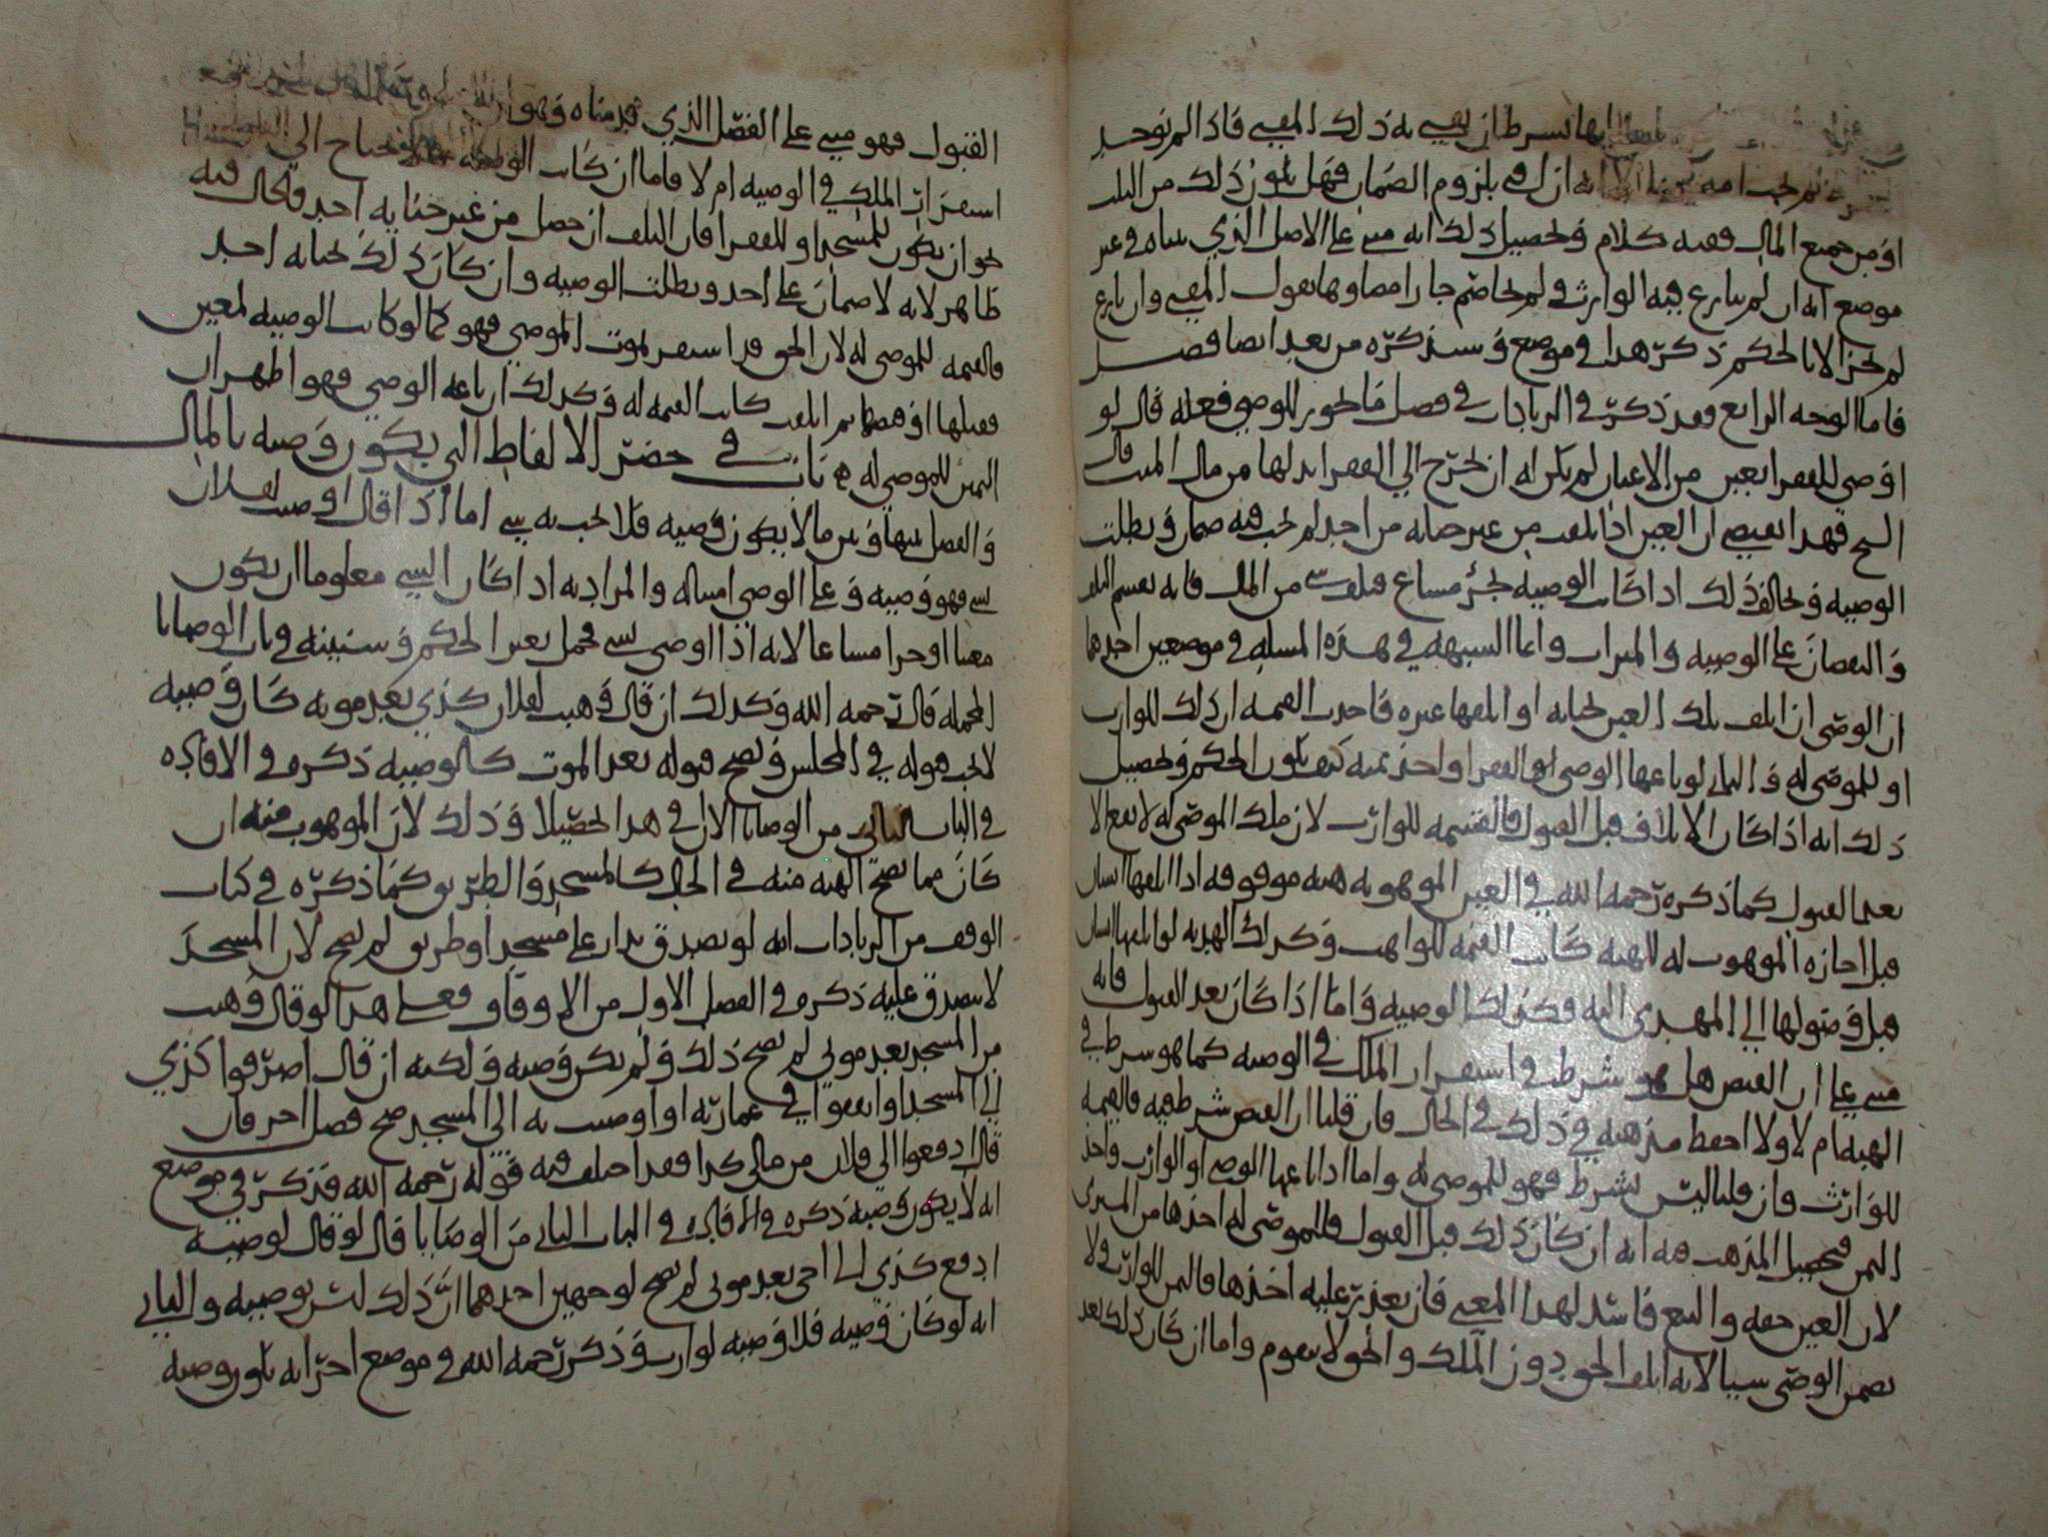 ايها بشرط ان يفتي به ذلك المفتي فاذا لم يوجد
انه ان افتي بلزوم الضمان فهل يكون ذلك من الثلث
او من جميع المال ففيه كلام وتحصيل ذلك انه مبني على الاصل الذي بيناه في غير
موضع انه ان لم ينازع فيه الوارث ولم يخاصم جاز امضاوها بقول المفتي وان نازع
لم يجز الا بالحكم ذكر هذا في موضع وسنذكره من بعد ايضا فصل
فاما الوجه الرابع وقد ذكر في الزيادات في فصل ما يجوز للوصي فعله قال لو
اوصى للفقرا بعين من الاعيان لم يكن له ان يخرج الى الفقرا بدلها من مال الميت قال
الشيخ فهذا يقتضي ان العين اذا تلفت من غير جناية من احد لم يجب فيه ضمان وبطلت
الوصيه ويخالف ذلك اذا كانت الوصيه بجزء مشاع فتلف شي من المال فانه يقسم التلف
والنقصان على الوصيه والميراث وانما الشبهه في هذه المسله في موضعين احدهما
ان الوصي ان اتلف تلك العين بجنايه او اتلفها غيره فاخذت القيمه ان ذلك للوارث
او للموصى له والثاني لو باعها الوصي او الفقرا واخذ ثمنه كيف يكون الحكم وتحصيل
ذلك انه اذا كان الاتلاف قبل القبول فالقيمه للوارث لان ملك الموصى له لا يقع الا
بعد القبول كما ذكره رحمه الله في العين الموهوبه هبه موقوفه اذا اتلفها انسان
قبل اجازه الموهوب له للهبه كانت القيمه للواهب وكذلك الهديه لو اتلفها انسان
قبل وصولها الى المهدى اليه وكذلك الوصيه واما اذا كان بعد القبول فانه
مبني على ان القبض هل هو شرط في استقرار الملك في الوصيه كما هو شرط في
الهبه ام لا ولا احفظ مذهبه في ذلك في الحال فان قلنا ان القبض شرط فيه فالقيمه
للوارث وان قلنا ليس بشرط فهو للموصى له واما اذا باعها الوصي او الوارث واخذ
الثمن فتحصيل المذهب فيه انه ان كان ذلك قبل القبول فللموصى له اخذها من المشتري
لان العين حقه والبيع فاسد لهذا المعنى فان تعذر عليه اخذها فالثمن للوارث ولا
يضمن الوصي شيا لانه اتلف الحق دون الملك والحق لا يقوم واما ان كان ذلك بعد
القبول فهو مبني على الفصل الذي قدمناه وهو
استقرار الملك في الوصيه ام لا فاما ان كانت الوصيه مما لا يحتاج الى القبول
نحو ان يكون للمسجد او للفقرا فان التلف ان حصل من غير جنايه احد فالحال فيه
ظاهر لانه لا ضمان على احد وبطلت الوصيه وان كان ذلك بجنايه احد
فالقيمه للموصى له لان الحق قد استقر بموت الموصي فهو كما لو كانت الوصيه لمعين
فقبلها او قبضها ثم اتلفت كانت القيمه له وكذلك ان باعه الوصي فهو اظهر ان
الثمن للموصى له باب في حصر الالفاظ التي يكون وصيه بالمال
والفصل بينها وبين ما لا يكون وصيه فلا يجب به شي اما اذا قال اوصيت لفلان
بشي فهو وصيه وعلى الوصي امتثاله والمراد به اذا كان الشي معلوما ان يكون
معينا او جزا مشاعا لانه اذا اوصى بشي مجمل يغير الحكم وسنبينه في باب الوصايا
المجمله قال رحمه الله وكذلك ان قال وهبت لفلان كذي بعد موته كان وصيه
لا يجب قبوله في المجلس ويصح قبوله بعد الموت كالوصيه ذكره في الافاده
في الباب الثاني من الوصايا الا ان في هذا تحصيلا وذلك لان الموهوب منه ان
كان مما يصح الهبه منه في الحال كالمسجد والطريق كما ذكره في كتاب
الوقف من الزيادات انه لو تصدق بدار على مسجد او طريق لم يصح لان المسجد
لا يتصدق عليه ذكره في الفصل الاول من الاوقاف فعلى هذا لو قال وهبت
من المسجد بعد موتي لم يصح ذلك ولم يكن وصيه ولكنه ان قال اصرفوا كذي
الى المسجد او انفقوا في عمارته او اوصيت به الى المسجد صح فصل اخر فان
قال ادفعوا الى فلان من مالي كذا فقد اختلف فيه قوله رحمه الله فذكر في موضع
انه لا يكون وصيه ذكره في الافاده في الباب الثاني من الوصايا قال لو قال لوصيه
ادفع كذي الى اخي بعد موتي لم يصح لوجهين احدهما ان ذلك ليس بوصيه والثاني
انه لو كان وصيه فلا وصيه لوارث وذكر رحمه الله في موضع اخر انه يكون وصيه